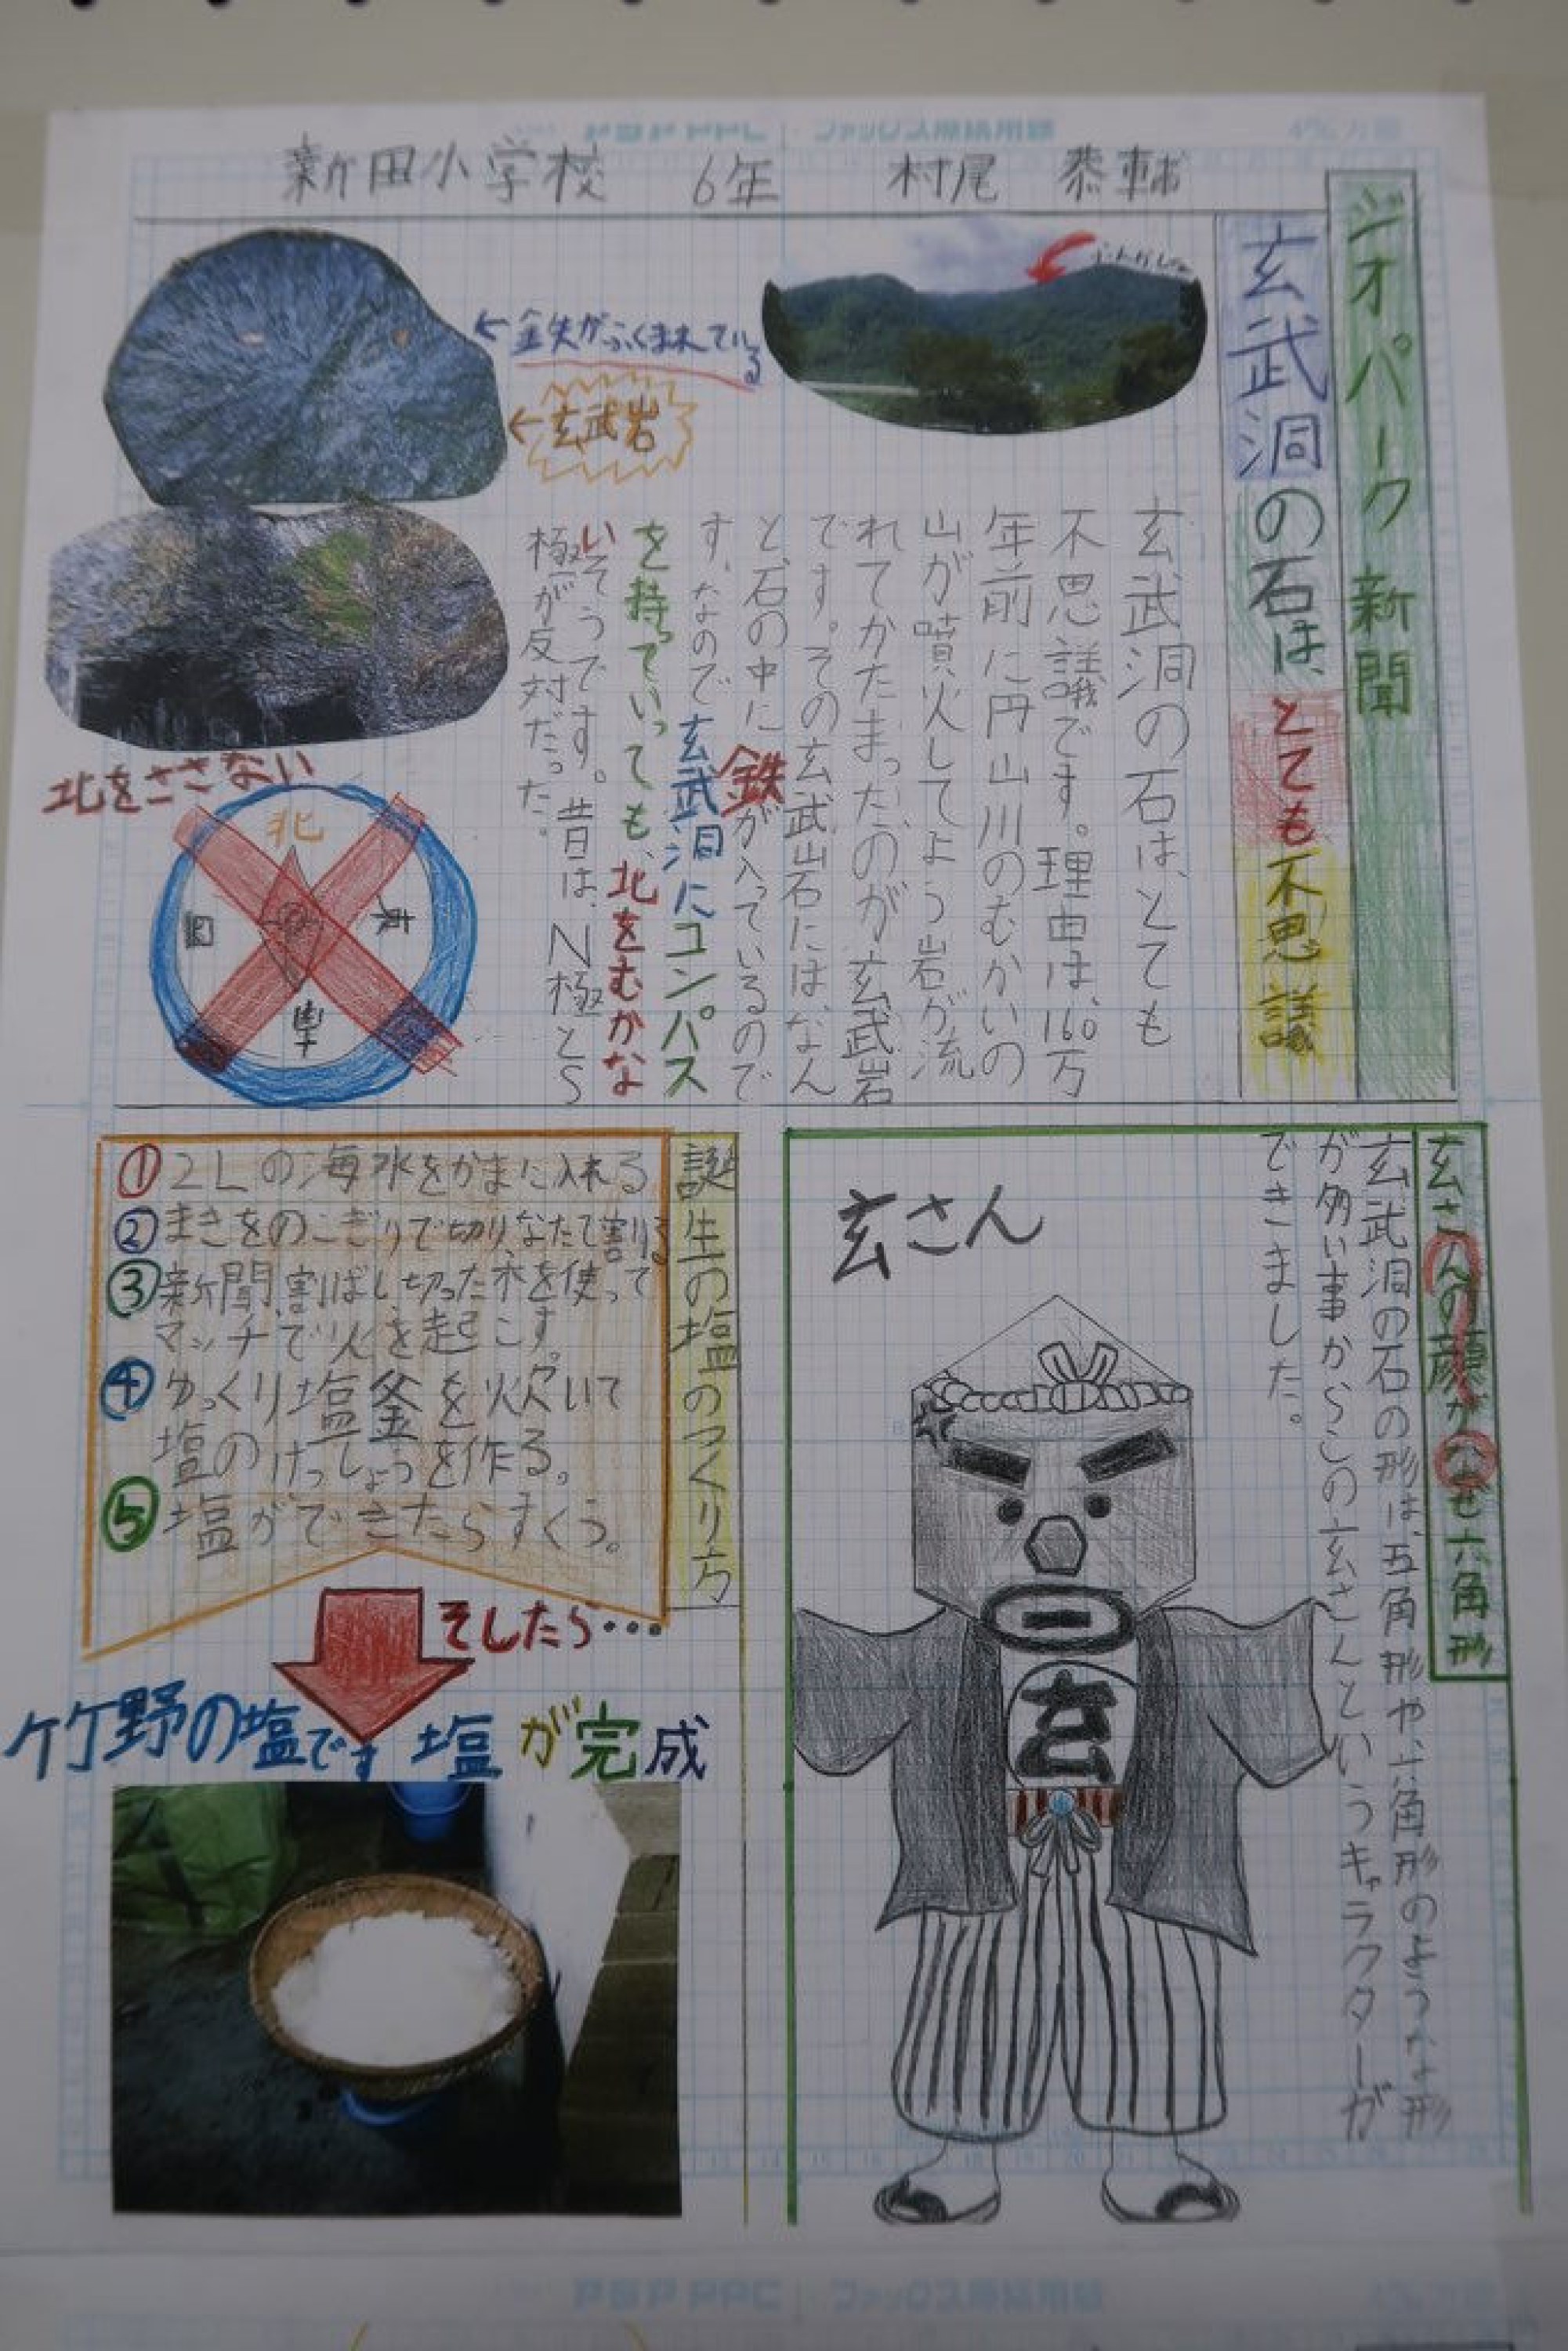 新田小学校 6年 村尾 恭輔
ジオパーク新聞
玄武洞の石は、とても不思議
玄武洞の石は、とても
不思議です。理由は、160万
年前に円山川のむかいの
山が噴火してよう岩が流
れてかたまったのが玄武岩
です。その玄武岩には、なん
と、石の中に鉄が入っているので
す。なので玄武洞にコンパス
を持っていっても、北をむかな
いそうです。昔は、N極とS
極が反対だった。
←鉄がふくまれている
←玄武岩
北をささない
北
東
西
南
玄さんの顔がなぜ六角形
玄武洞の石の形は、五角形や、六角形のような形
が多い事からこの玄さんというキャラクターが
できました。
玄さん
玄
誕生の塩のつくり方
①2Lの海水をかまに入れる
②まきをのこぎりで切り、なたで割る
③新聞、割ばし、切った木を使って
マッチで火を起こす。
④ゆっくり塩釜を炊いて
塩のけっしょうを作る。
⑤塩ができたらすくう。
そしたら…
竹野の塩です 塩が完成